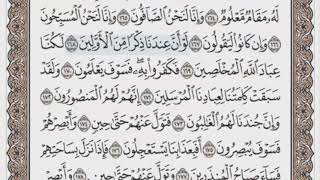 لَهُۥ مَقَامٌ مَّعْلُومٌ ١٦٤ وَإِنَّا لَنَحْنُ ٱلصَّآفُّونَ ١٦٥ وَإِنَّا لَنَحْنُ ٱلْمُسَبِّحُونَ
١٦٦ وَإِن كَانُوا۟ لَيَقُولُونَ ١٦٧ لَوْ أَنَّ عِندَنَا ذِكْرًا مِّنَ ٱلْأَوَّلِينَ ١٦٨ لَكُنَّا
عِبَادَ ٱللَّهِ ٱلْمُخْلَصِينَ ١٦٩ فَكَفَرُوا۟ بِهِۦ فَسَوْفَ يَعْلَمُونَ ١٧٠ وَلَقَدْ
سَبَقَتْ كَلِمَتُنَا لِعِبَادِنَا ٱلْمُرْسَلِينَ ١٧١ إِنَّهُمْ لَهُمُ ٱلْمَنصُورُونَ ١٧٢
وَإِنَّ جُندَنَا لَهُمُ ٱلْغَٰلِبُونَ ١٧٣ فَتَوَلَّ عَنْهُمْ حَتَّىٰ حِينٍ ١٧٤ وَأَبْصِرْهُمْ
فَسَوْفَ يُبْصِرُونَ ١٧٥ أَفَبِعَذَابِنَا يَسْتَعْجِلُونَ ١٧٦ فَإِذَا نَزَلَ بِسَاحَتِهِمْ
فَسَآءَ صَبَاحُ ٱلْمُنذَرِينَ ١٧٧ وَتَوَلَّ عَنْهُمْ حَتَّىٰ حِينٍ ١٧٨ وَأَبْصِرْ